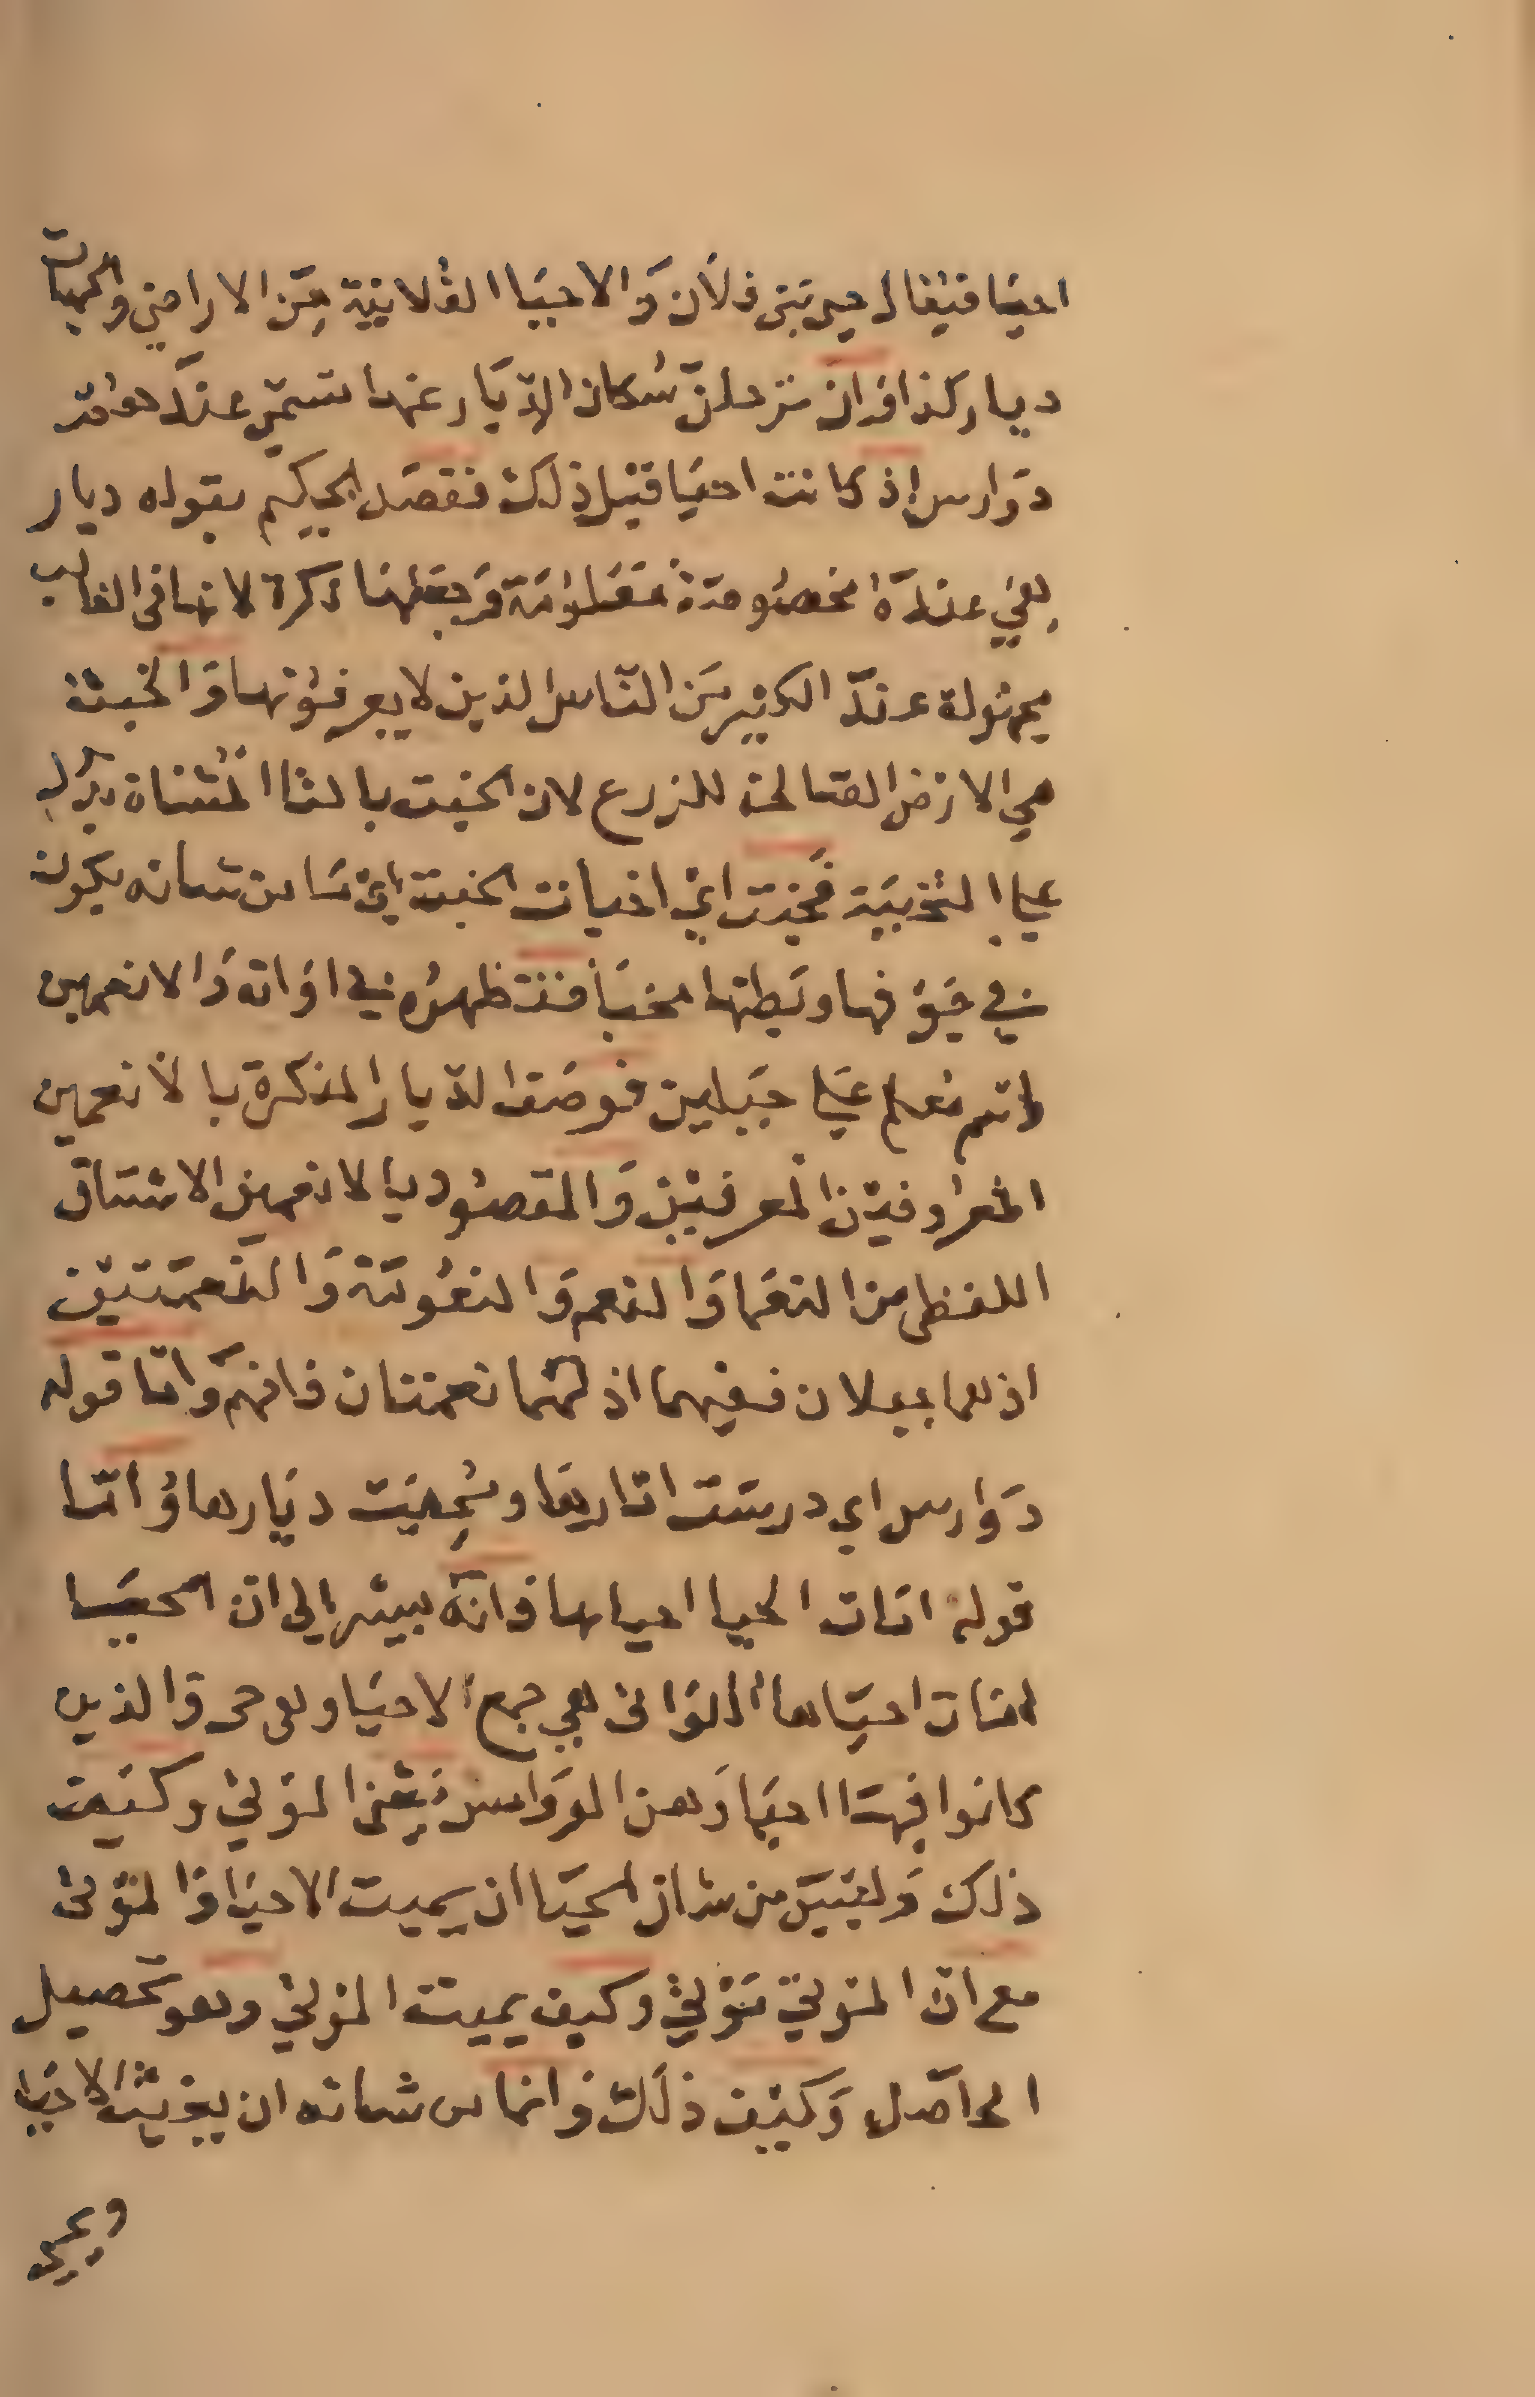 احيا فيقال حي بني فلان والاحيا الفلانية من الاراضي والجهات
ديار كذا فان ترحلن سكان الديار عنها تسمى عند
دوارس اذ كانت احيا قبل ذلك فقصد الحكيم بقوله ديار
هي عنده مخصوصة معلومة وجعلها نكرة لانها في الغالب
مجهولة عند الكثير من الناس الذين لا يعرفونها والخبت
هي الارض الصالحة للزرع لان الخبت بالتا المثناة يدل
علي التخبية فخبت اي اخبات الخبت اي ما من شانه يكون
في جوفها وبطنها مخبا فتظهره في اوانه والانعمين
اسم معلم علي جبلين فوصف الديار المنكرة بالانعمين
المعروفين المعرفين والمقصود بالانعمين الاشتقاق
اللفظي من النعما والنعم والنعومة والنعمتين
اذ هما جبلان فيهما نعمتان فافهم واما قوله
دوارس اي درست اثارها ومحيت ديارها واما
قوله امات الحيا احياها فانه يشير الي ان الحيا
امات احياها اللواتي هي جمع الاحيا وهي حي والذين
كانوا فيها احيا وهن الدوارس المولي وكيف
ذلك وليس من شان الحيا ان يميت الاحيا والمولي
مع ان المولي مولي وكيف يميت المولي وهو تحصيل
الحاصل وكيف ذلك وانما من شانه ان يغيث الاحيا
ويحيي